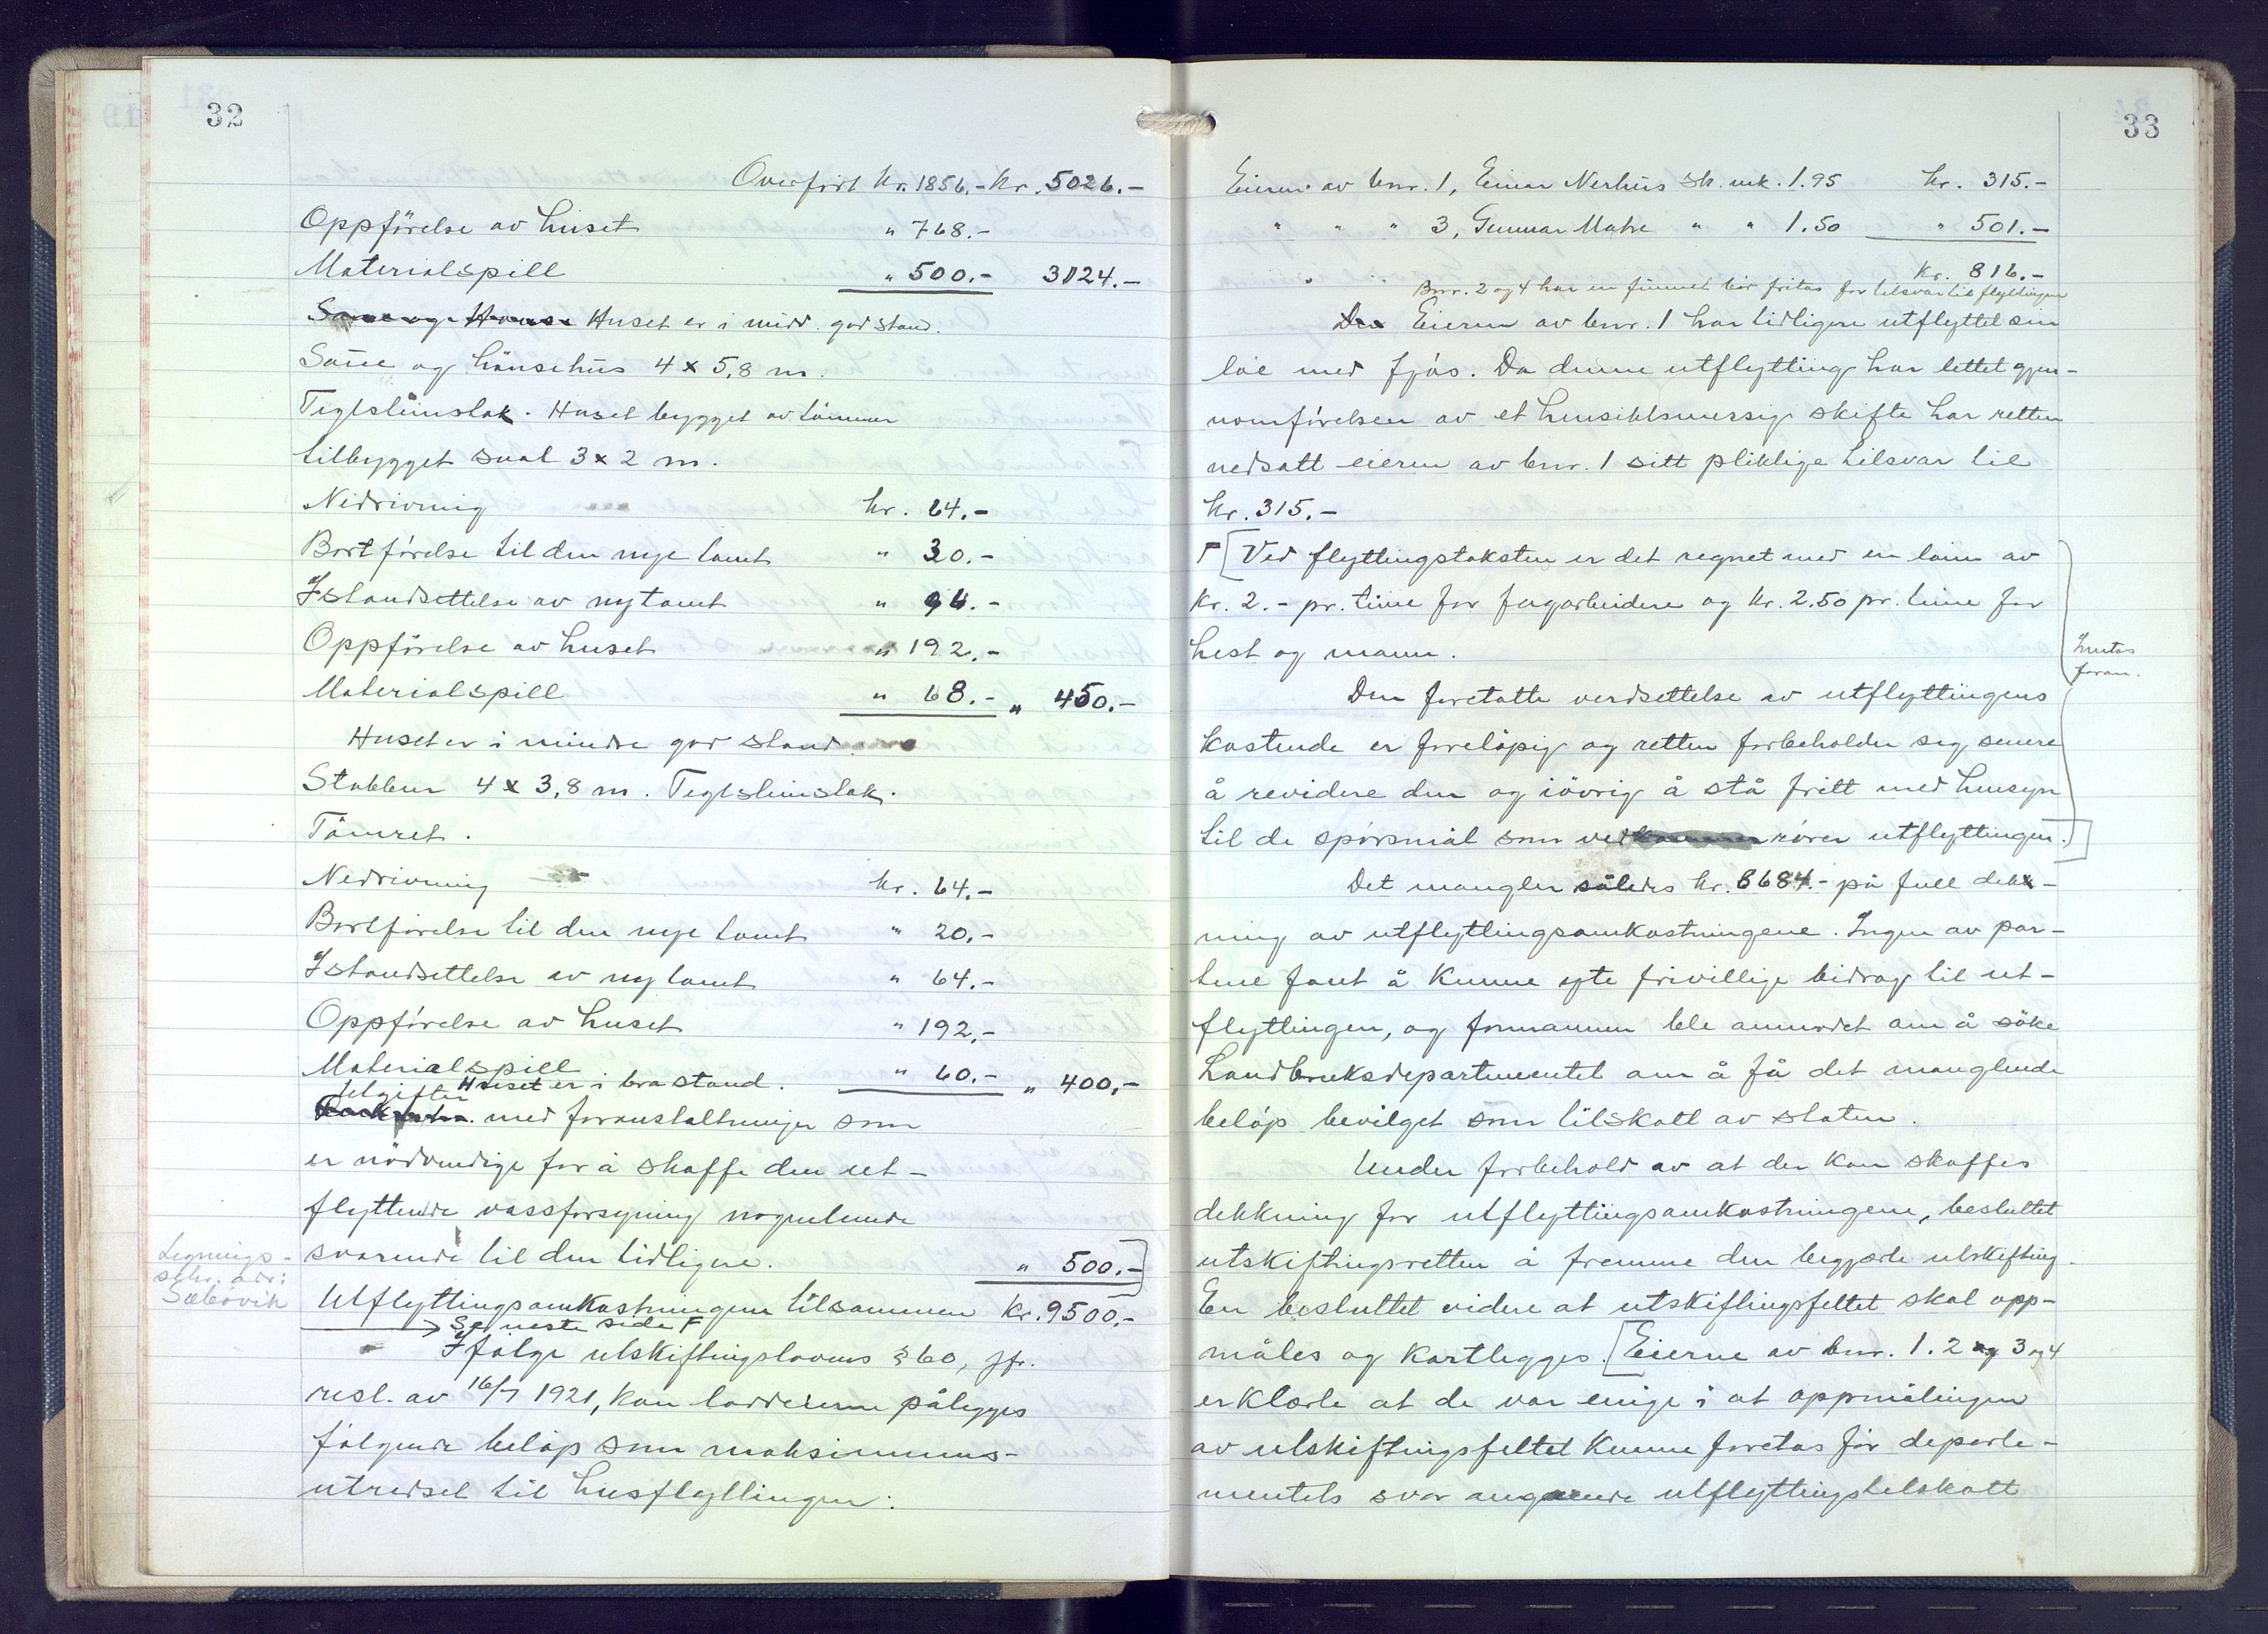 32
Overført kr. 1856.- kr. 5026.-
Oppförelse av huset " 768.-
Materialspill " 500.- 3124.-
Huset er i mind. god stand.
Saue og hönsehus 4 x 5,8 m.
Teglsteinstak. Huset bygget av tömmer
tilbygget sval 3 x 2 m.
Nedrivning kr. 64.-
Bortförelse til den nye tomt " 30.-
Istandsettelse av ny tomt " 96.-
Oppförelse av huset " 192.-
Materialspill " 68.- " 450.-
Huset er i mindre god stand.
Stabbur 4 x 3,8 m. Teglsteinstak.
Tömret.
Nedrivning kr. 64.-
Bortförelse til den nye tomt " 20.-
Istandsettelse av ny tomt " 64.-
Oppförelse av huset " 192.-
Materialspill " 60.- " 400.-
Huset er i bra stand.
Utgifter med foranstaltninger som
er nödvendige for å skaffe den ut-
flyttende vassforsyning nogenlunde
svarende til den tidligere. " 500.-]
Legnings-
skr. adr:
Sæbövik
Utflyttingsomkostningene tilsammen kr. 9500.-
→ Se neste side F
Ifölge utskiftingslovens § 60, jfr.
resl. av 16/7 1921, kan lodd­eierne pålegges
fölgende belöp som maksimums-
utredsel til husflyttingen:
33
Eieren av bnr. 1, Einar Nerhus sk. mk. 1.95 kr. 315.-
" " " 3, Gunnar Matre " " 1.50 " 501.-
Kr. 816.-
Bnr. 2 og 4 har en funnet bör fritas for tilsvar til flyttingen
Eieren av bnr. 1 har tidligere utflyttet sin
löe med fjös. Da denne utflytting har lettet gjen-
nomförelsen av et hensiktsmessig skifte har retten
nedsatt eieren av bnr. 1 sitt pliktige tilsvar til
kr. 315.-
F [Ved flyttingstaksten er det regnet med en lönn av
kr. 2.- pr. time for fagarbeidere og kr. 2.50 pr. time for
hest og mann.
Inntas
foran.
Den foretatte verdsettelse av utflyttingens
kostende er foreløpig og retten forbeholder seg senere
å revidere den og iövrig å stå fritt med hensyn
til de spörsmål som vedrörer utflyttingen.]
Det mangler således kr. 8684.- på full dekk-
ning av utflyttingsomkostningene. Ingen av par-
tene fant å kunne yte frivillige bidrag til ut-
flyttingen, og formannen ble anmodet om å söke
Landbruksdepartementet om å få det manglende
belöp bevilget som tilskott av staten.
Under forbehold av at der kan skaffes
dekkning for utflyttingsomkostningene, besluttet
utskiftingsretten å fremme den begjærte utskifting.
En besluttet videre at utskiftingsfeltet skal opp-
måles og kartlegges. [Eierne av bnr. 1. 2 og 3 og 4
erklærte at de var enige i at oppmålingen
av utskiftingsfeltet kunne foretas för departe-
mentets svar angående utflyttingstilskott